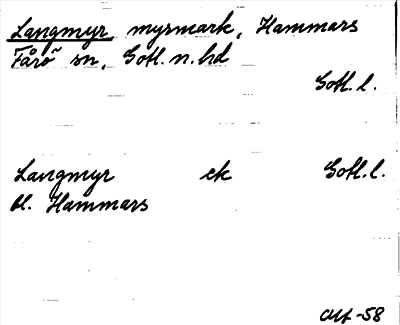 Langmyr, myrmark, Hammars
Fårö sn, Gotl. n. hd
Gotl. l.
Langmyr ek Gotl. l.
bl. Hammars
-58